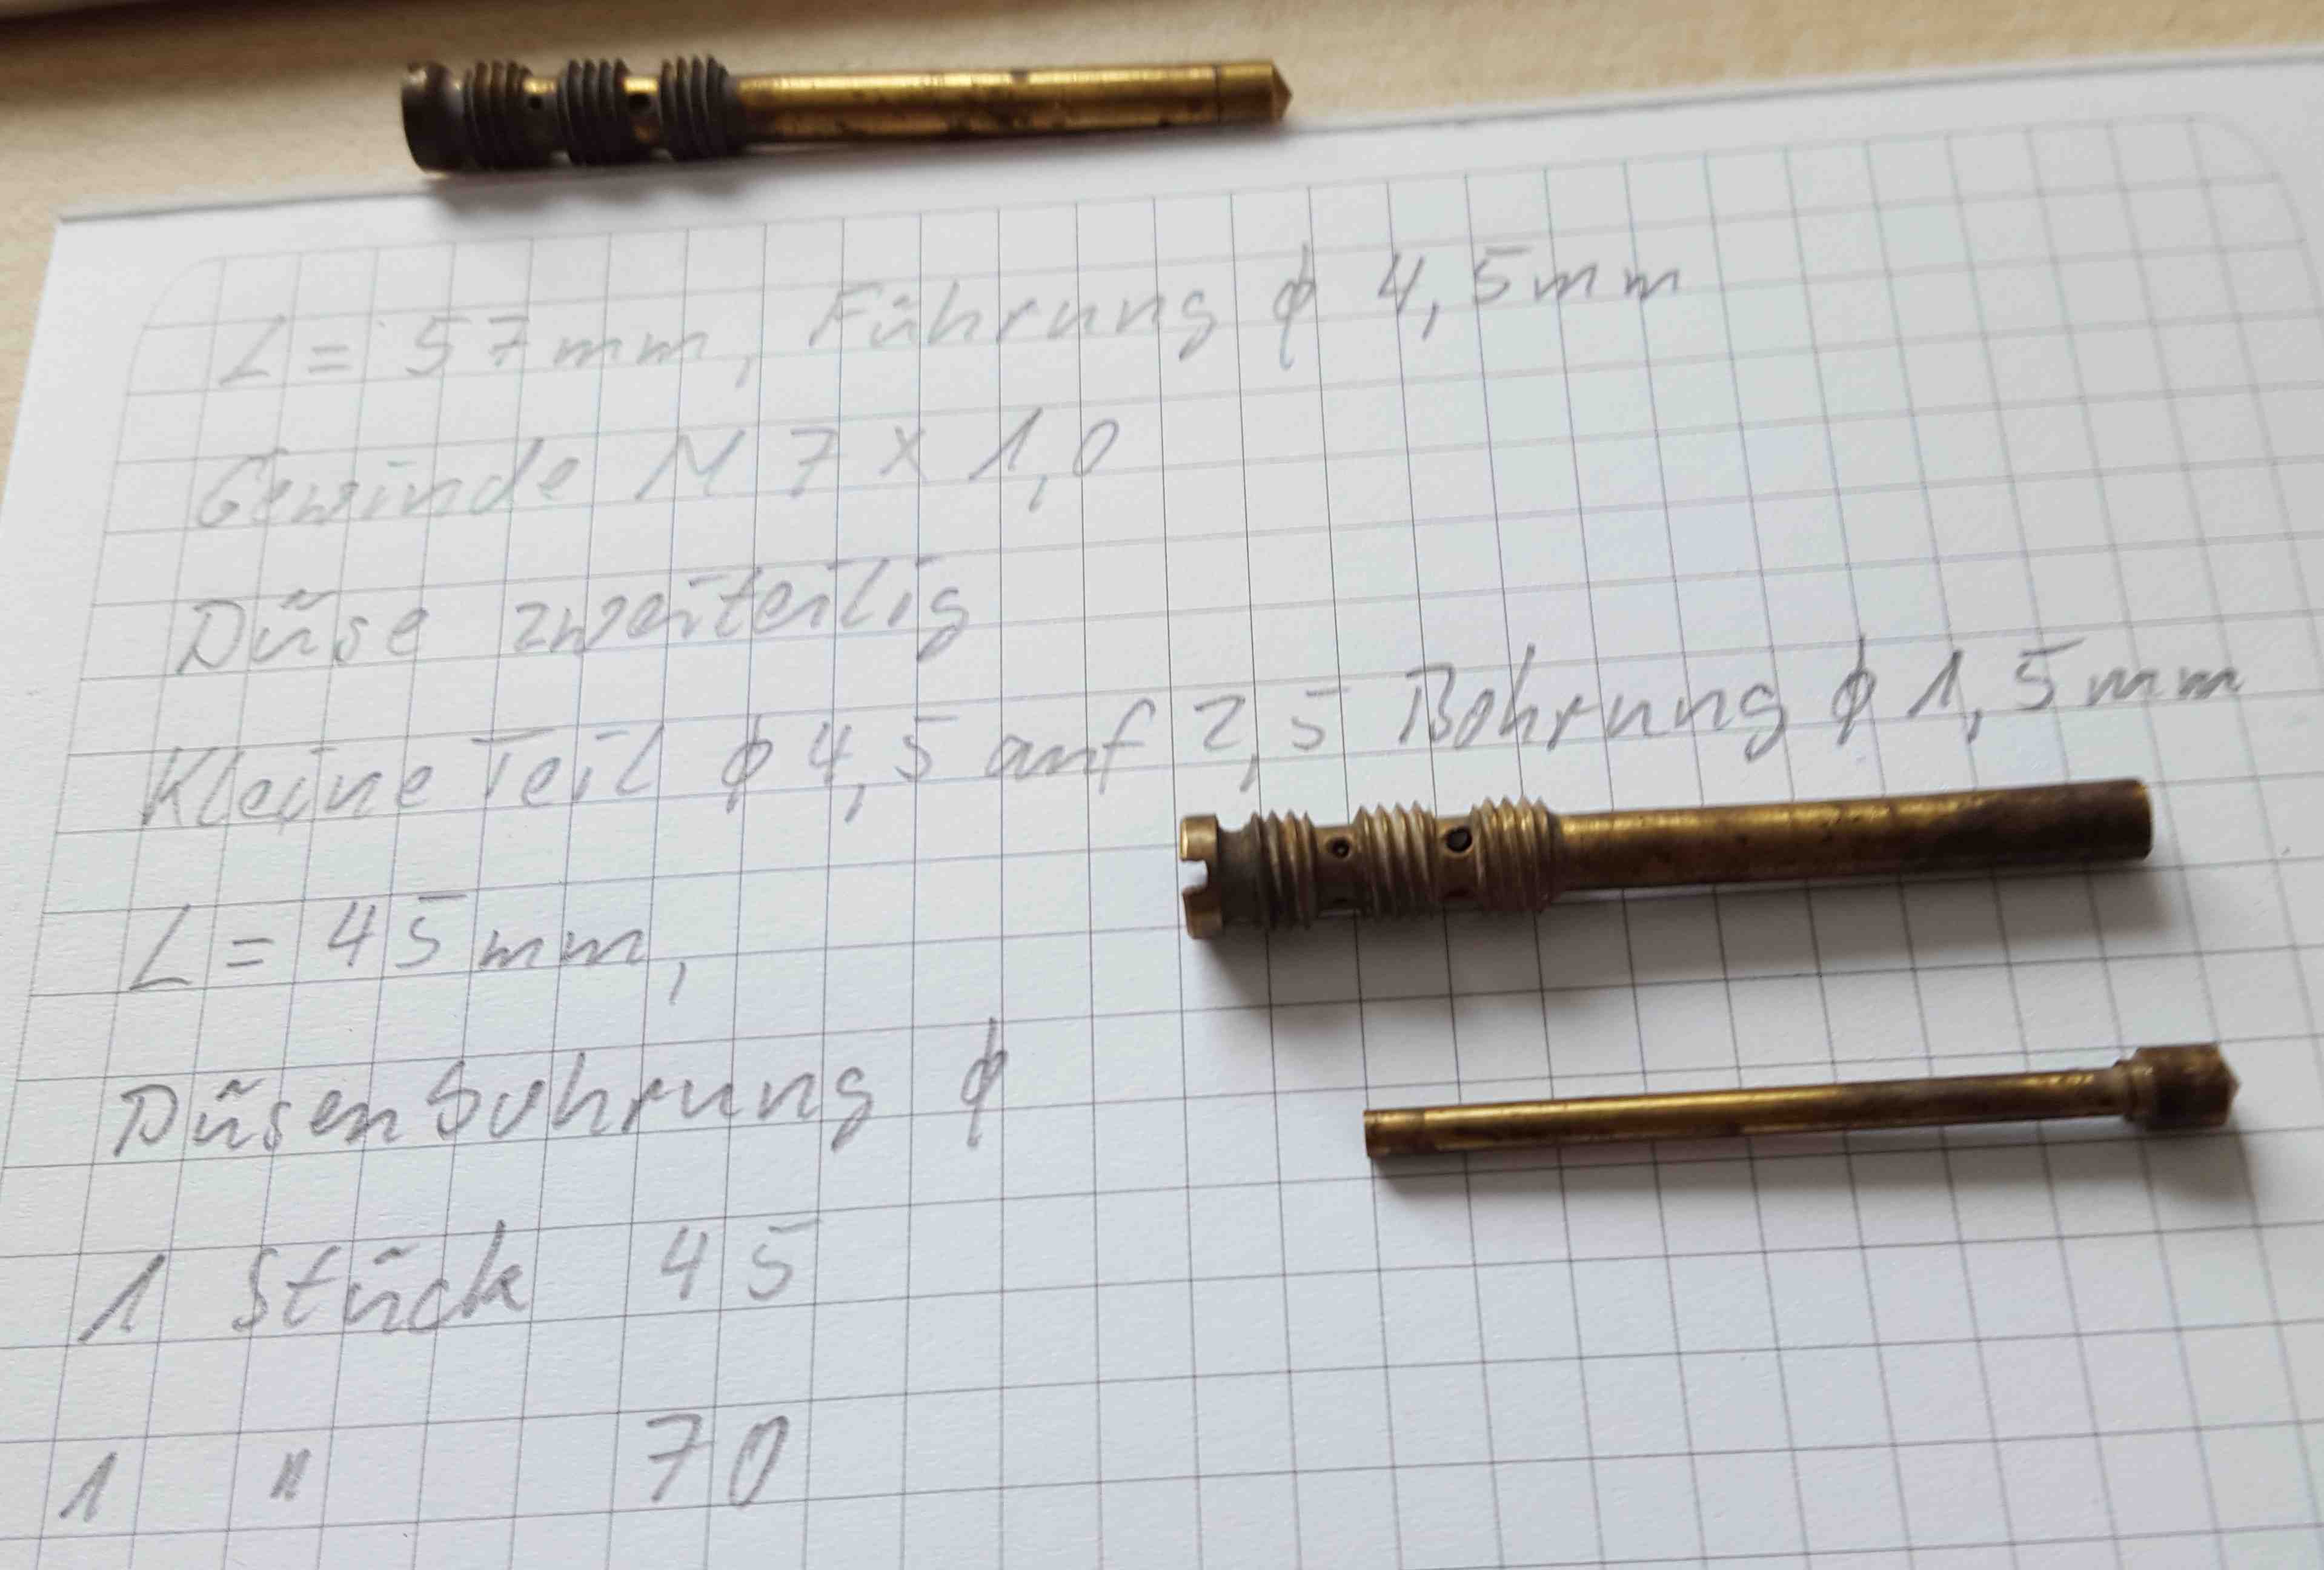 L = 57mm, Führung ϕ 4,5mm
Gewinde M 7 x 1,0
Düse zweiteilig
Kleine Teil ϕ 4,5 auf 2,5 Bohrung ϕ 1,5mm
L = 45mm,
Düsenbohrung ϕ
1 Stück 45
1 " 70